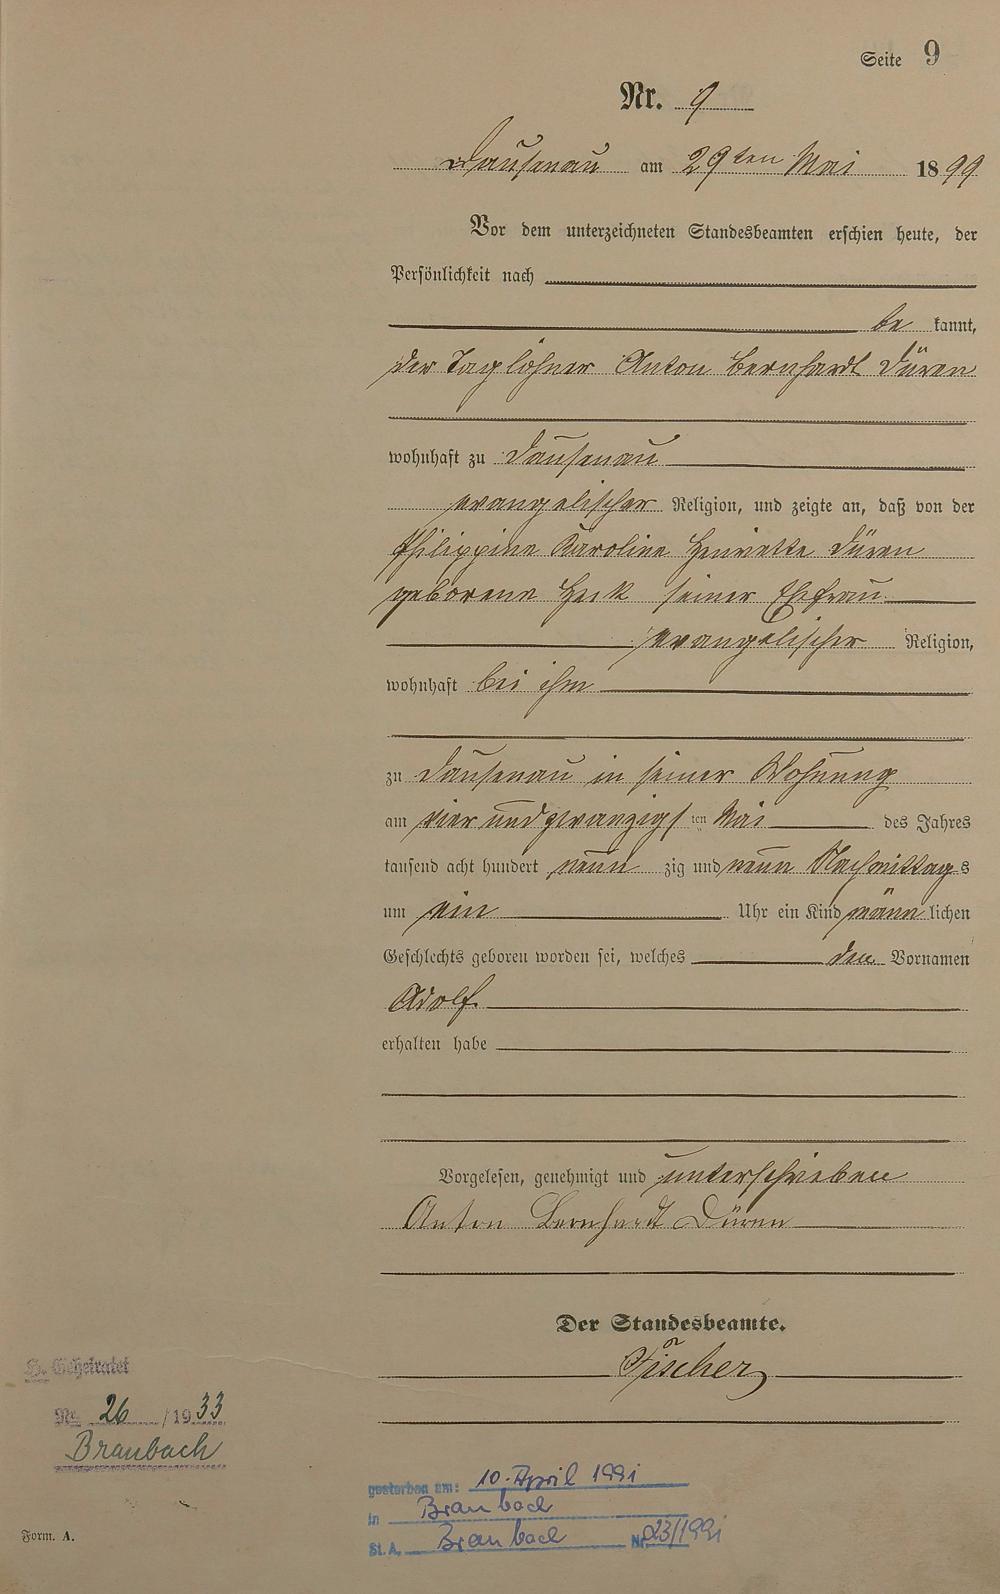 Seite 9
Nr. 9
Dausenau am 29ten Mai 1899
Vor dem unterzeichneten Standesbeamten erschien heute, der
Persönlichkeit nach
be kannt,
der Taglöhner Anton Bernhardt Düren
wohnhaft zu Dausenau
evangelischer Religion, und zeigte an, daß von der
Philippine Karoline Henriette Düren
geborene Heck seiner Ehefrau
evangelischer Religion,
wohnhaft bei ihm
zu Dausenau in seiner Wohnung
am vier und zwanzigs ten Mai des Jahres
tausend acht hundert neun zig und neun Nachmittags
um ein Uhr ein Kind männlichen
Geschlechts geboren worden sei, welches den Vornamen
Adolf
erhalten habe
Vorgelesen, genehmigt und unterschrieben
Anton Bernhardt Düren
Der Standesbeamte.
Fischer
Geheiratet
Nr. 26 /1933
Braubach
gestorben am: 10. April 1991
in Braubach
St.A. Braubach Nr. 23/1991
Form. A.